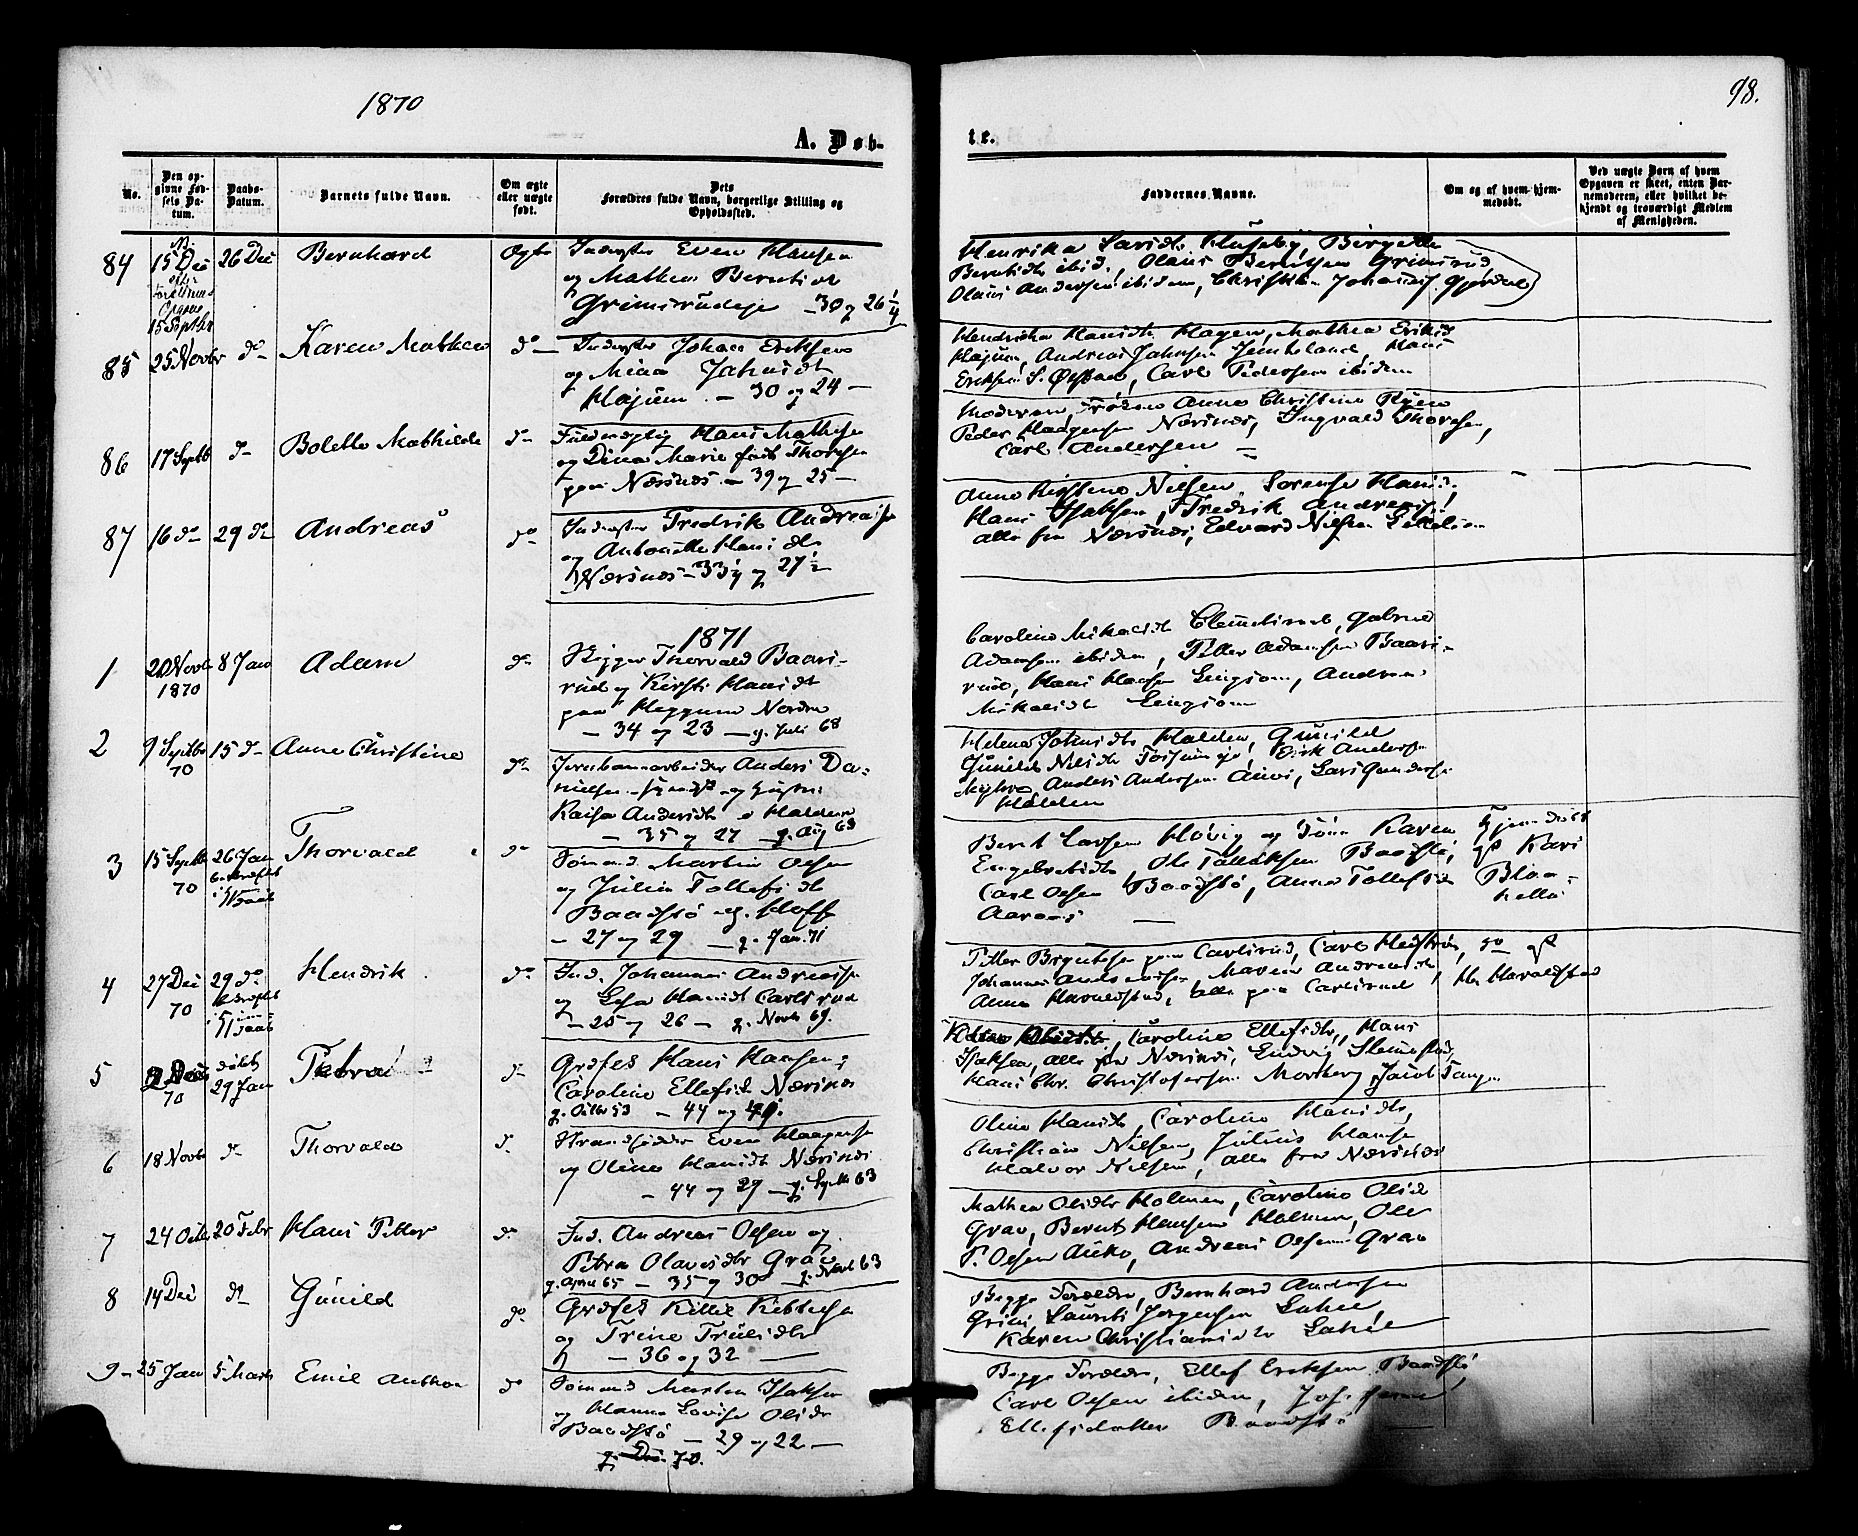 1870
98.
A. Døb-
te.
No.
Den op-
givne Fød-
sels Da-
tum.
Daabs-
Datum.
Barnets fulde Navn.
Om ægte
eller uægte
født.
Dets
Forældres fulde Navn, borgerlige Stilling og
Opholdssted.
Faddernes Navne.
Om og af hvem hjem-
medøbt.
Ved uægte Børn af hvem
Opgaven er skeet, enten Bar-
nemoderen, eller hvilket be-
kjendt og troværdigt Medlem
af Menigheden.
84
15 Dec
efter
Forældrenes
Opgave
15 Septbr
26 Dec
Bernhard
Ægte
Inderster Even Hansen
og Mathea Berntsdt
Grimsrudeje - 30 og 26 1/4
Henrika Larsdtr Huseby, Birgitte
Berntsdtr ibid., Olaus Berntsen Grimsrud
Olaus Andersen ibidem, Christian Johannes. Gjerdal
85
25 Novbr
do
Karen Mathea
do
Inderster Johan Eriksen
og Mina Johnsdt
Højum - 30 og 24 -
Hendrikka Hansdt Hagen, Mathea Eriksd
Højum, Andreas Johnsen Jemteland, Hans
Eriksen S. Ølstad, Carl Pedersen ibidem
86
17 Septb
do
Bolette Mathilde
do
Fuldmægtig Hans Mathisen
og Dina Marie født Thorsen
paa Nærsnes - 39 og 25 -
Moderen, Frøken Anna Christine Ryen
Peder Haagensen Nærsnes, Ingvald Thorsen,
Carl Andersen -
87
16 do
29 do
Andreas
do
Inderster Fredrik Andreasen
og Antonette Hansdtr
Nærsnes - 33 1/4 og 27 1/2
Anne Kirstine Nielsen, Lorense Hansd.
Hans Isaksen, Fredrik Andreasen,
alle fra Nærsnes, Edvard Nilsen
1871
1
20 Novbr
1870
8 Jan
Adam
do
Bygger Thorvald Baars-
rud og Kirsti Hansdt
paa Heggum Nordre
- 34 og 23 - g. Juli 68
Caroline Mikalsdt Clemetsrud, Gabriel
Adamsen ibidem, Petter Adamsen Baars-
rud, Hans Hansen Lingsom, Andrea
Mikalsdt Lingsom
2
9 Septbr
70
15 do
Anne Christine
do
Jernbanearbeider Anders Da-
nielsen og Hustru
Kaisa Andersdt Halden
- 35 og 27 g. Aug 69
Helena Johnsdtr Halden, Gunild
Gunild Nilsdtr Fossum eje, Erik Andersen
Myhre, Anders Andersen Auvi, Lars Gundersen
Halden
3
15 Septbr
70
26 Jan
bekræftet
i Kirken
Thorvald
do
Sømand Martin Olsen
og Julia Tollefsdt
Baadstø eg. Hoff
- 27 og 29 - g. Jan. 71
Bernt Larsen Høvig og Kone Karen
Engebretsdt, Ole Tollefsen Baadstø,
Carl Olsen Baadstø, Anna Tollefsdt
Aaraas -
Hjemmedøbt
af Kari
Blaa-
kolla
4
27 Dec
70
29 do
Hendrik
do
Ind. Johannes Andreassen
og Lisa Hansdt Carlsrud
- 25 og 26 - g. Novbr 69.
Petter Bryntesen paa Carlsrud, Carl Hedstrøm,
Johannes Andreassen, Maren Andreasdt
Anne Haraldstad, alle paa Carlsrud
do af
Haraldstad
5
Dec
70
døbt
29 Jan
do
Grdfes Hans Hansen og
Caroline Ellefsdt Nærsnes
g. Octbr 53 - 44 og 40.
Caroline Ellefsdtr, Hans
Isaksen, alle fra Nærsnes, Ludvig Slemmestad,
Hans Chr. Christofersen Morberg, Jacob Tangen
6
18 Novbr
do
Thorvald
do
Strandsidder Even Haagensen
og Oline Hansdt Nærsnes
- 44 og 29 - g. Septb 63
Oline Hansdt, Caroline Hansdtr,
Christian Nilsen, Julius Hansen
Halvor Nilsen, alle fra Nærsnes
7
24 Octbr
20 Febr
Hans Petter
do
Ind. Andreas Olsen og
Petra Olavesdtr Grav
g. April 65 - 35 og 30 g. Novbr 63
Mathea Olsdtr Holmen, Caroline Olsd
Grav, Bernt Hansen Holmen, Ole
P. Olsen Auke, Andreas Olsen Grav
8
14 Dec
do
Gunild
do
Grdfes Killil Kittelsen
og Trine Truelsdtr
- 36 og 32 -
Begge Forældre, Bernhard Andersen
Grini, Laurits Jørgensen Lahell,
Karen Christiansdtr Lahell
9
25 Jan
5 Marts
Emil Anthon
do
Sømand Martin Isaksen
og Hanna Lovise Olsdtr
Baadstø - 29 og 22 -
g. Dec. 70.
Begge Forældre, Ellef Eriksen Baadstø,
Carl Olsen ibidem, Josefine
Ellefsdatter Baadstø